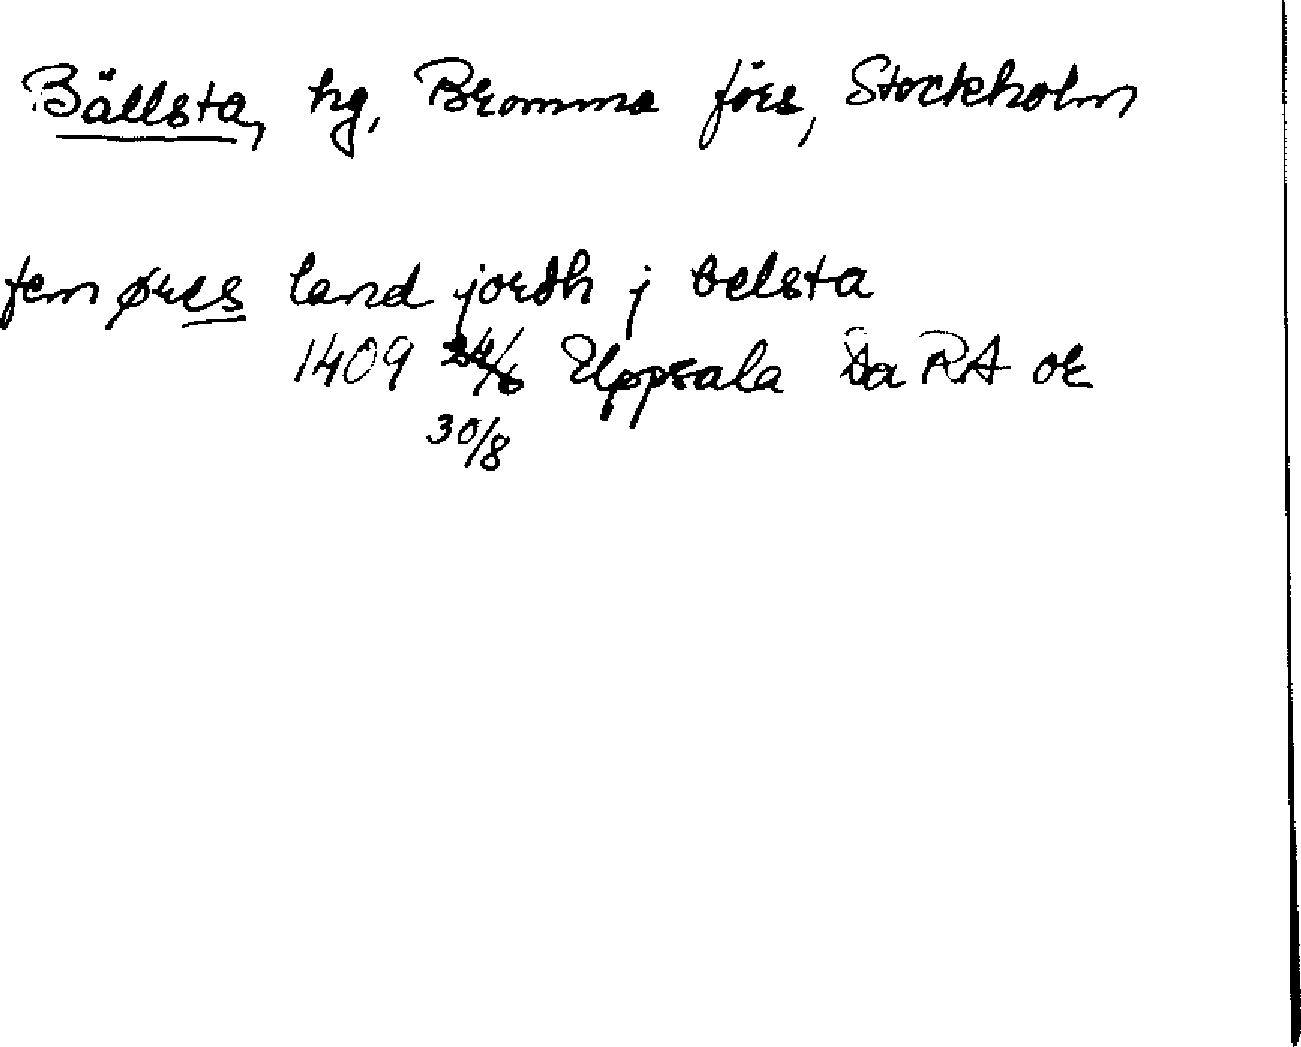 Bällsta, hg, Bromma förs, Stockholm
fem øres land jordh j belsta
1409 24/6 Uppsala Da RA or
30/8